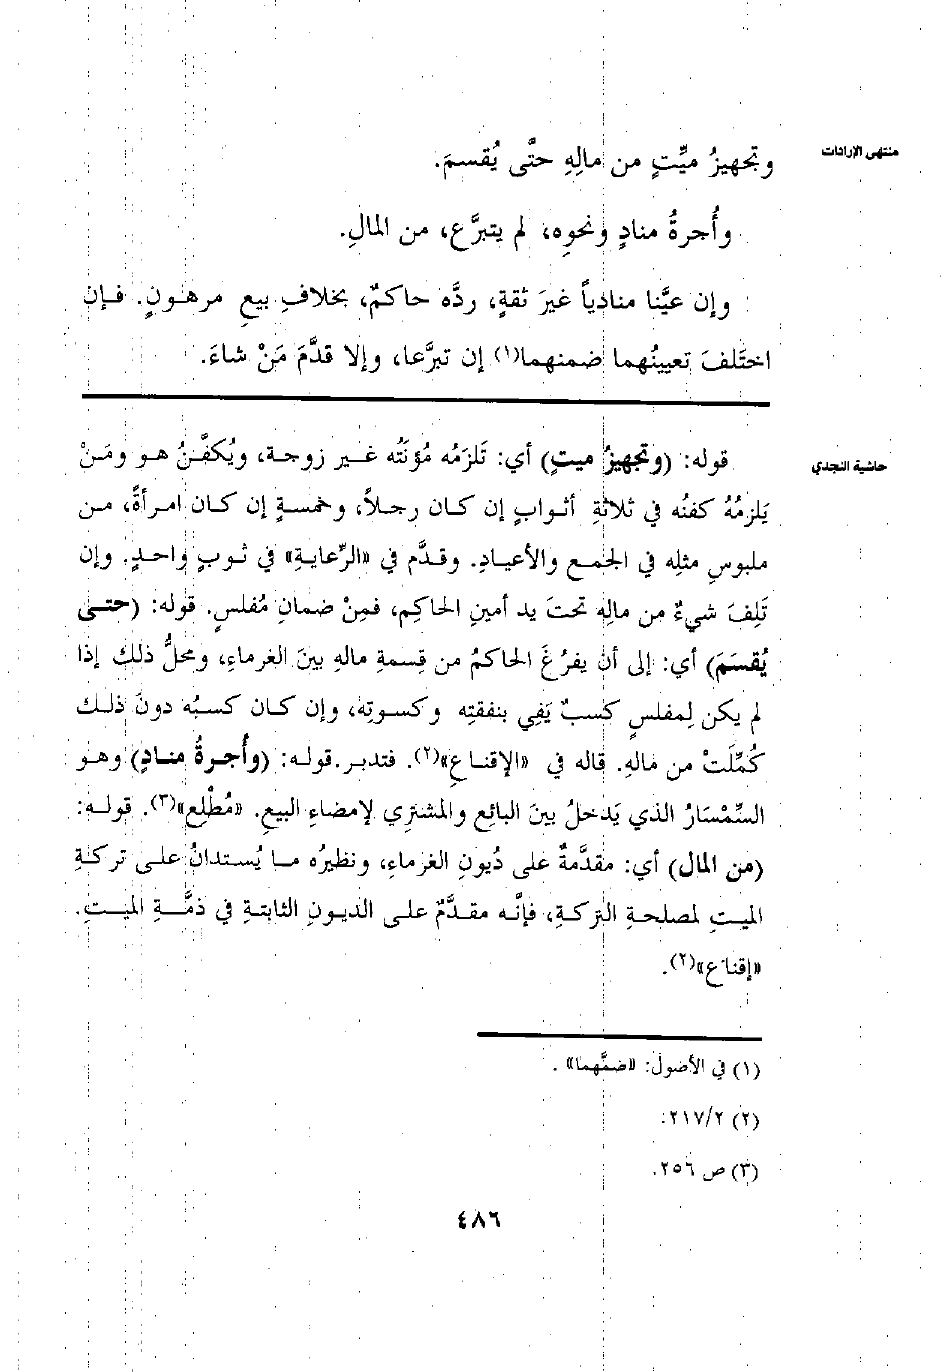 منتهى الإرادات
وتجهيزُ ميِّتٍ من مالِهِ حتَّى يُقسمَ.
وأُجرةُ منادٍ ونحوِه، لم يتبرَّع، من المالِ.
وإن عيَّنا منادياً غيرَ ثقةٍ، ردَّه حاكمٌ، بخلافِ بيعِ مرهونٍ. فإن
اختَلفَ تعيينُهما ضمنهما(١) إن تبرَّعا، وإلا قدَّمَ مَنْ شاءَ.
حاشية النجدي
قوله: (وتجهيزُ ميتٍ) أي: تَلزَمُه مُؤنَتُه غير زوجة، ويُكفَّنُ هو ومَنْ
يَلزمُهُ كفنُه في ثلاثةِ أثوابٍ إن كان رجلاً، وخمسةٍ إن كان امرأةً، من
ملبوسِ مثلِه في الجمعِ والأعيادِ. وقدَّم في «الرِّعايةِ» في ثوبٍ واحدٍ. وإن
تَلِفَ شيءٌ من مالِه تحتَ يد أمينِ الحاكِم، فمِنْ ضمانِ مُفلسٍ. قوله: (حتى
يُقسَمَ) أي: إلى أن يفرُغَ الحاكمُ من قِسمةِ مالهِ بينَ الغرماءِ، ومحلُّ ذلك إذا
لم يكن لِمفلسٍ كسبٌ يَفِي بنفقتِه وكسوتِه، وإن كان كسبُه دونَ ذلك
كُمِّلَتْ من مالهِ. قاله في «الإقناعِ»(٢). فتدبر.قوله: (وأُجرةُ منادٍ) وهو
السِّمْسَارُ الذي يَدخلُ بينَ البائِعِ والمشترِي لإمضاءِ البيعِ. «مُطْلِع»(٣). قوله:
(من المال) أي: مقدَّمةٌ على دُيونِ الغرماءِ، ونظيرُه ما يُستدانُ على تركةِ
الميتِ لمصلحةِ التركةِ، فإنَّه مقدَّمٌ على الديونِ الثابتةِ في ذمَّةِ الميتِ.
«إقناع»(٢).
(١) في الأصول: «ضمَّنهما» .
(٢) ٢١٧/٢.
(٣) ص ٢٥٦.
٤٨٦